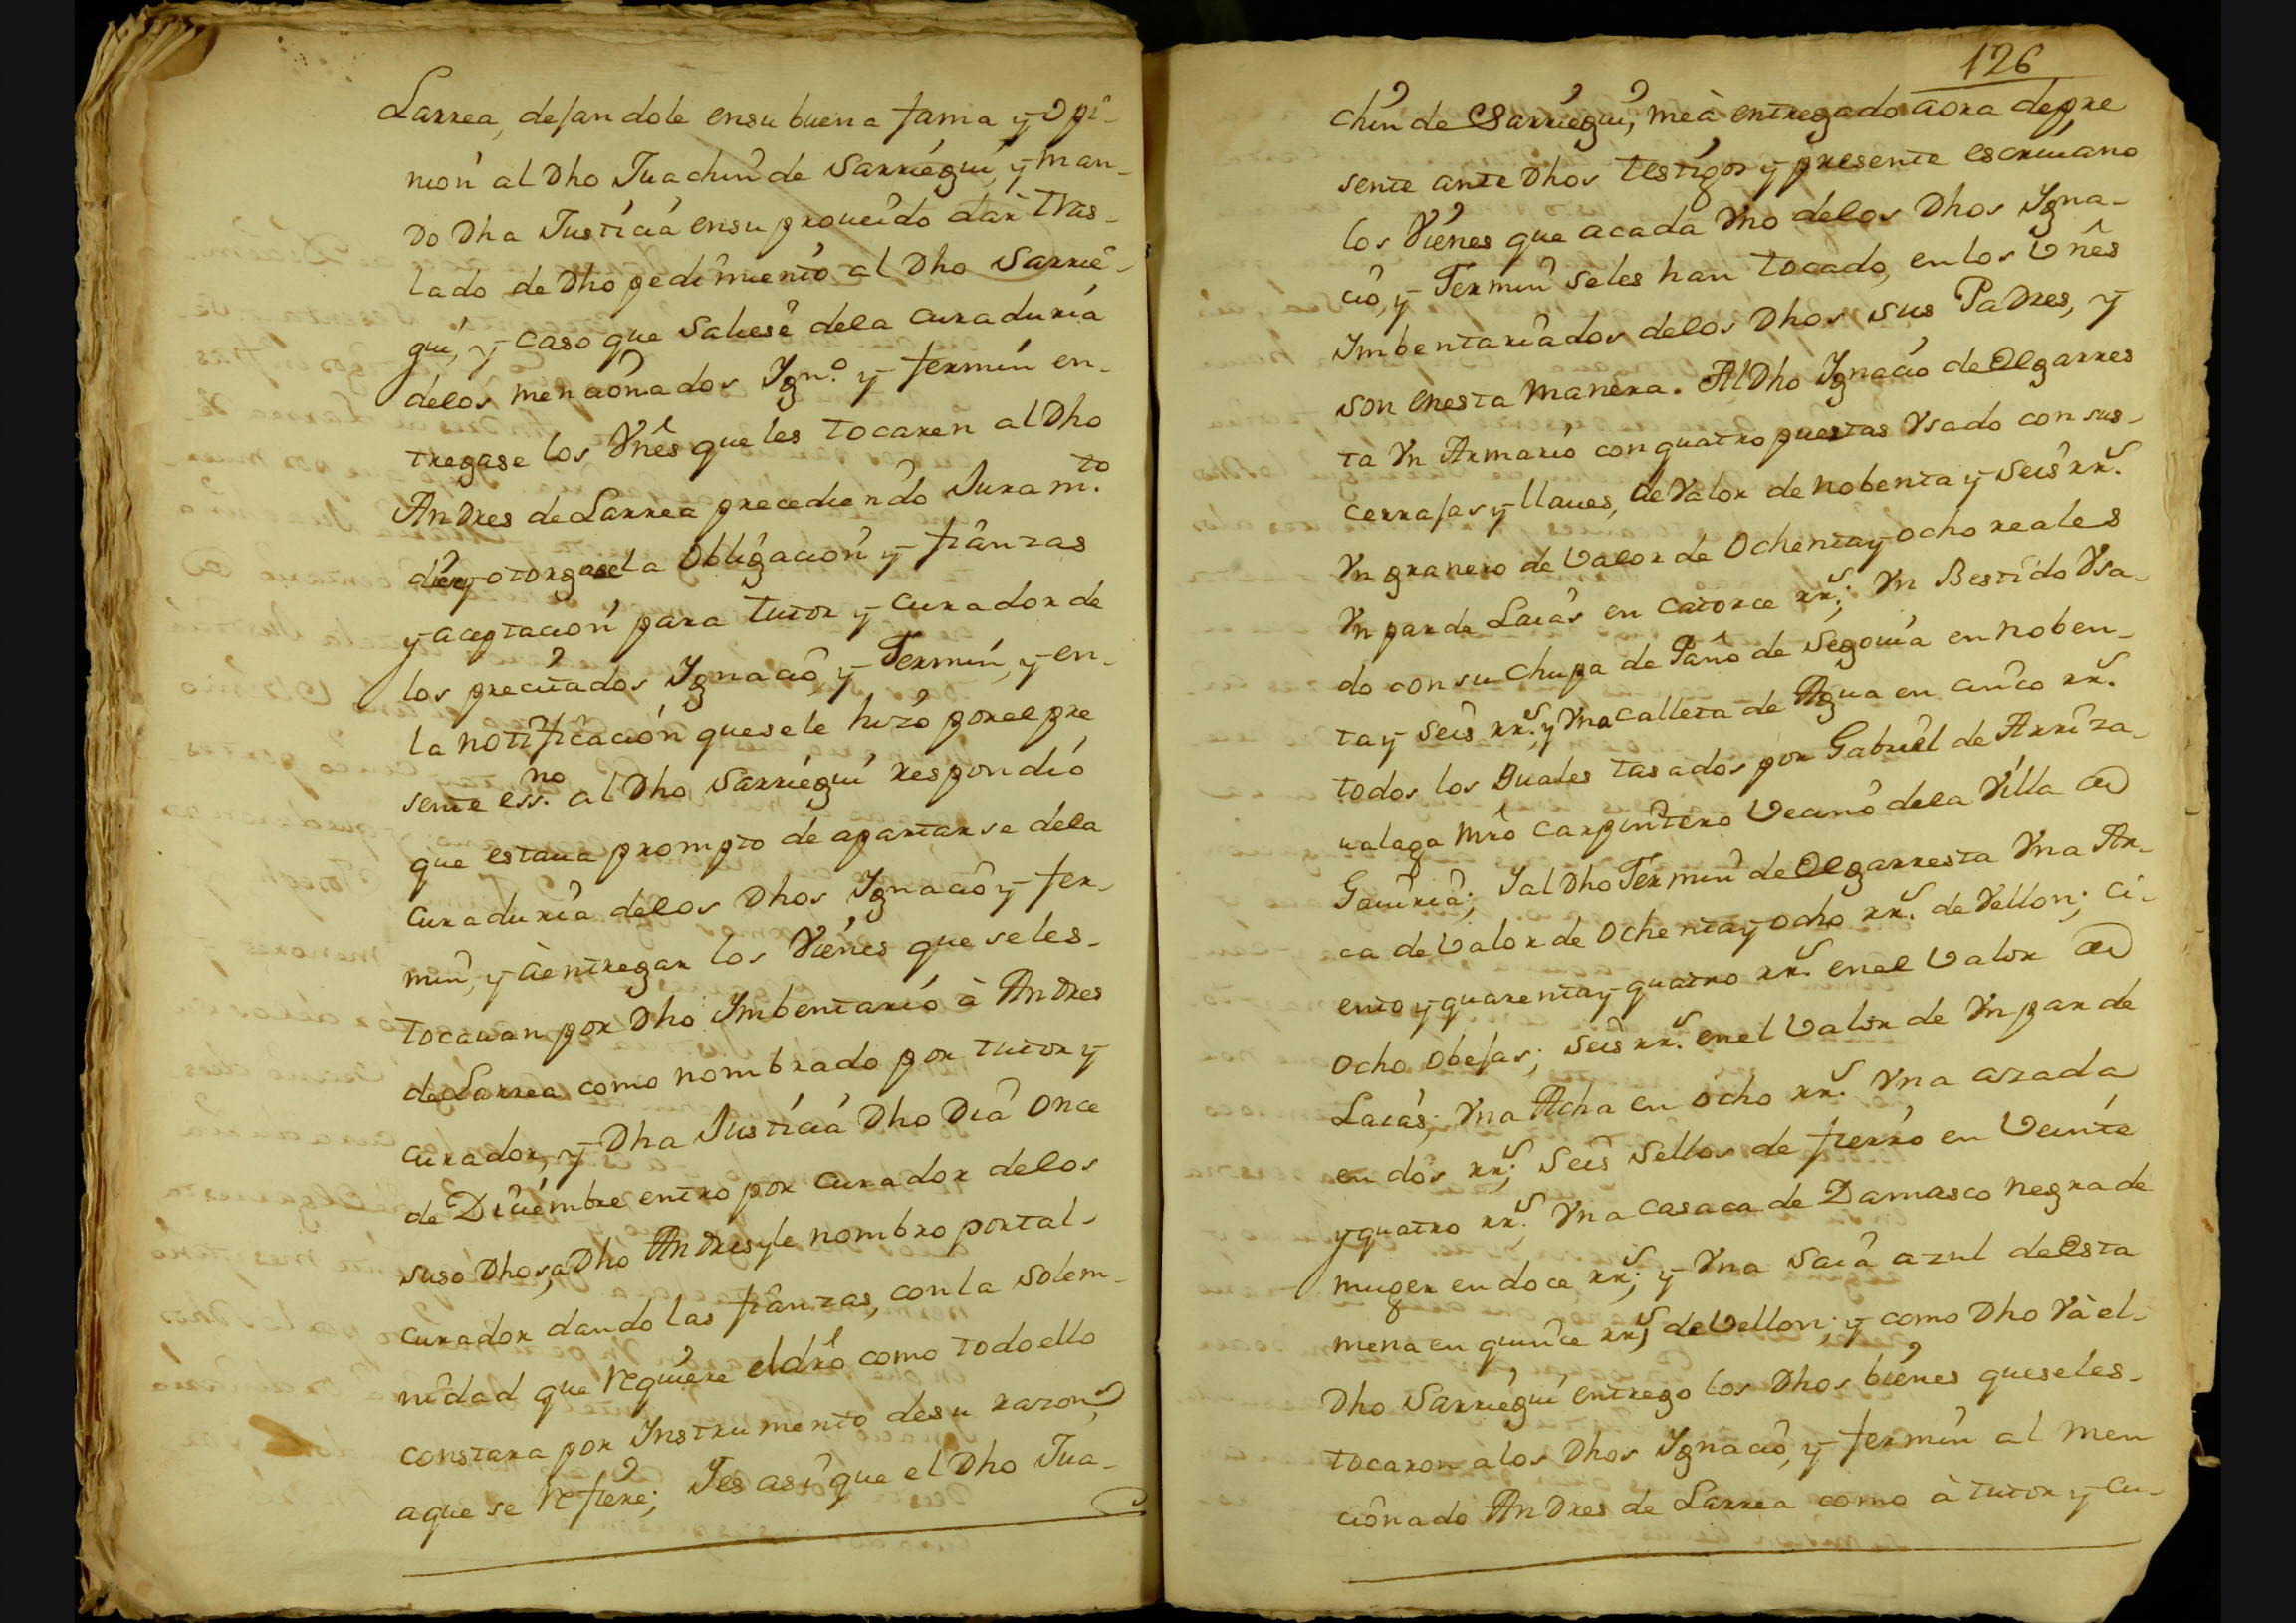 Larrea, dejandole ensu buena fama y Opi-
nion al Dho Juachin de Sarriegui, y man-
do Dha Justicia ensu proueido dar tras-
lado de Dho pedimiento al Dho Sarrie-
gui, y caso que saliese dela curaduria
delos mencionados Ygn.º y fermin en-
tregase los Vnes que les tocaren al Dho
Andres de Larrea precediendo Juram.to
y otorgase la Obligacion y fianzas
y aceptacion para tutor y curador de
los precitados Ygnacio, y Fermin, y en-
la notificacion quesele hizo por el pre
sente ess.no al Dho Sarriegui respondio
que estaua prompto de apartarse dela
curaduria delos Dhos Ygnacio y fer-
min, y à entregar los Vienes que seles-
tocauan por Dho Ymbentario à Andres
de Larrea como nombrado por tutor y
curador, y Dha Justicia Dho Dia Once
de Diciembre entro por curador delos
suso Dhos, a Dho Andres y le nombro por tal-
curador dando las fianzas, con la solem-
nidad que requiere el dro como todo ello
constara por Instrumento desu razon,
aque se refiere; Yes asi que el Dho Jua-
126
chin de Sarriegui, me à entregado aora de pre
sente ante Dhos testigos y presente escriuano
los Vienes que acada Vno delos Dhos Ygna-
cio, y Fermin seles han tocado, en los Vnes
Ymbentariados delos Dhos sus Padres, y
son enesta manera. Al Dho Ygnacio de Olgarres
ta Vn Armario con quatro puertas Vsado con sus-
cerrajas y llaues, de Valor de nobenta y seis rr.s
Vn granero de Valor de Ochenta y ocho reales
Vn par de Laias en catorce rr.s; Vn Bestido Vsa-
do con su chupa de Paño de Segouia en noben-
ta y seis rr.s, y Vna calleta de Agua en cinco rr.s
todos los quales tasados por Gabriel de Arriza-
ualaga Mro carpintero Vecino dela Villa de
Gauiria; Y al Dho Fermin de Olgarresta Vna Ar-
ca de Valor de Ochenta y ocho rr.s de Vellon; ci-
ento y quarenta y quatro rr.s enel Valor de
Ocho Obejas; seis rr.s enel Valor de Vn par de
Laias; Vna Acha en Ocho rr.s Vna azada
en dos rr.s; Seis Sellos de fierro en Veinte
y quatro rr.s; Vna casaca de Damasco negra de
muger en doce rr.s; y Vna saia azul de Esta
mena en quince rr.s de Vellon; y como Dho Và el-
Dho Sarriegui entrego los Dhos bienes queseles-
tocaron alos Dhos Ygnacio, y fermin al men
cionado Andres de Larrea como à tutor y cu-